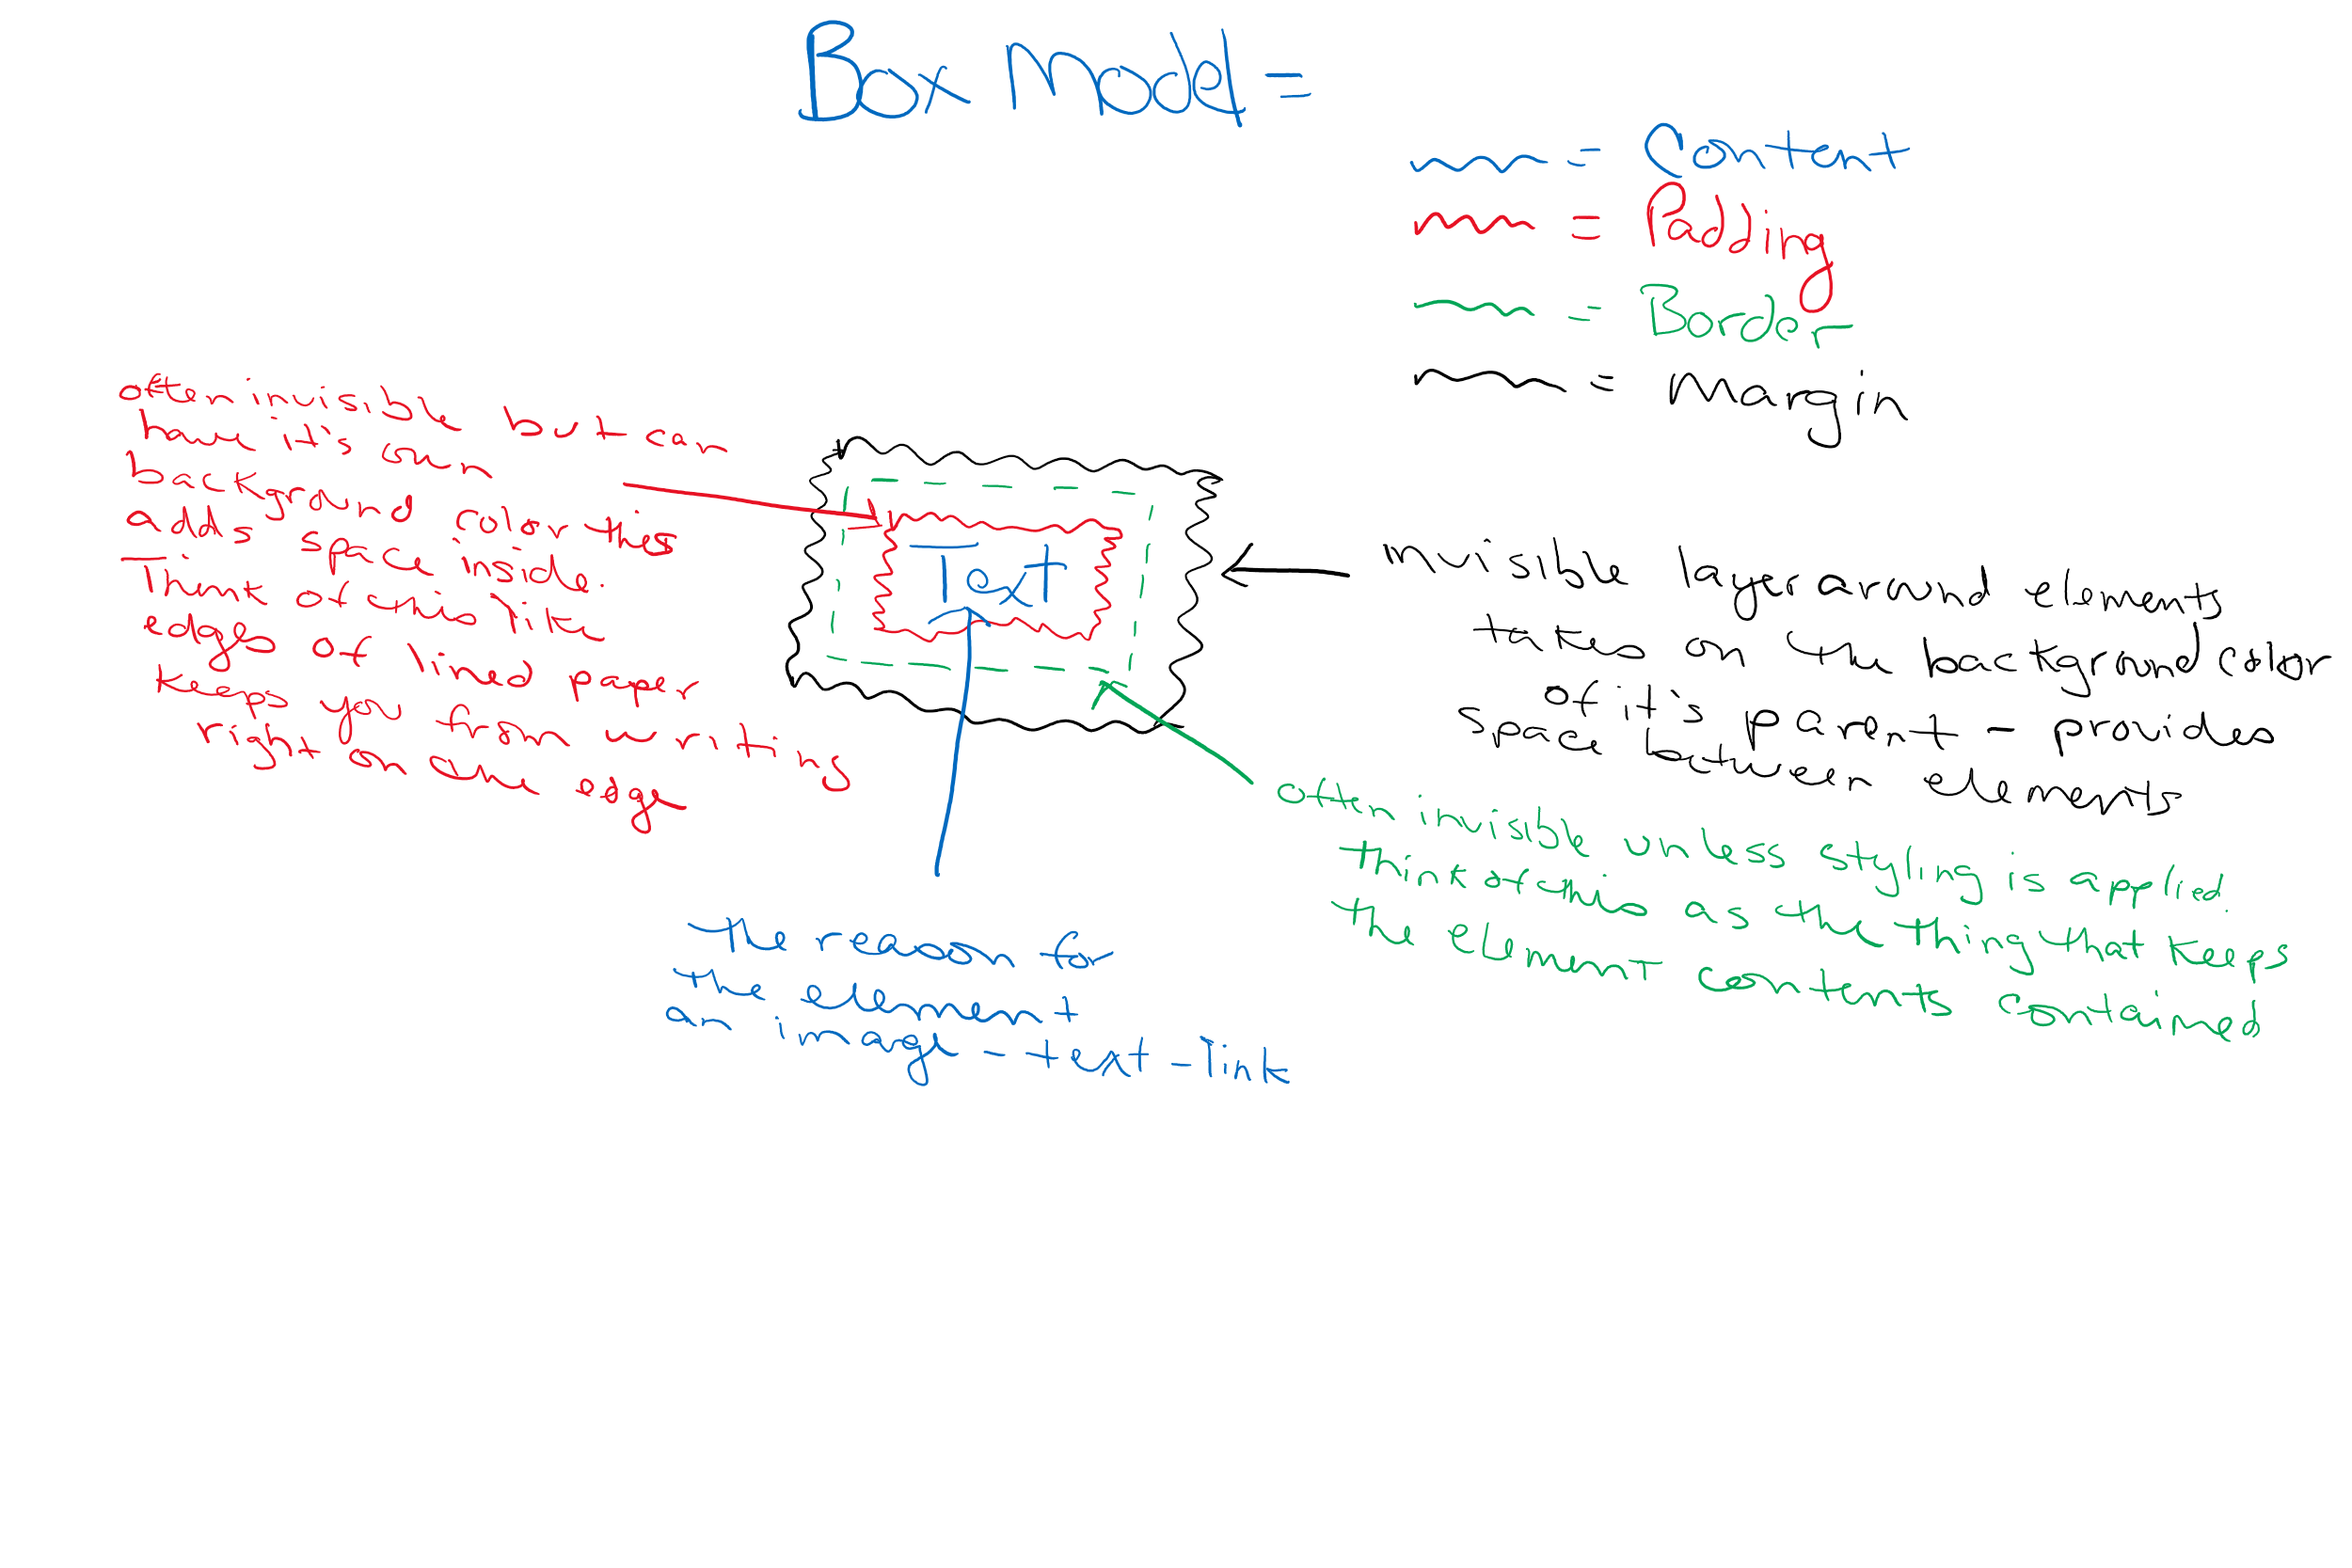 Box Model =
= Content
= Padding
= Border
= Margin
often invisible but can
have it's own
background color this
adds space inside.
Think of this like
edges of lined paper
keeps you from writing
right on the edge
Text
invisible layer around elements
takes on the background color
of it's parent - provides
space between elements
often invisible unless styling is applied.
Think of this as the thing that keeps
the element contents contained
The reason for
the element
an image - text - link